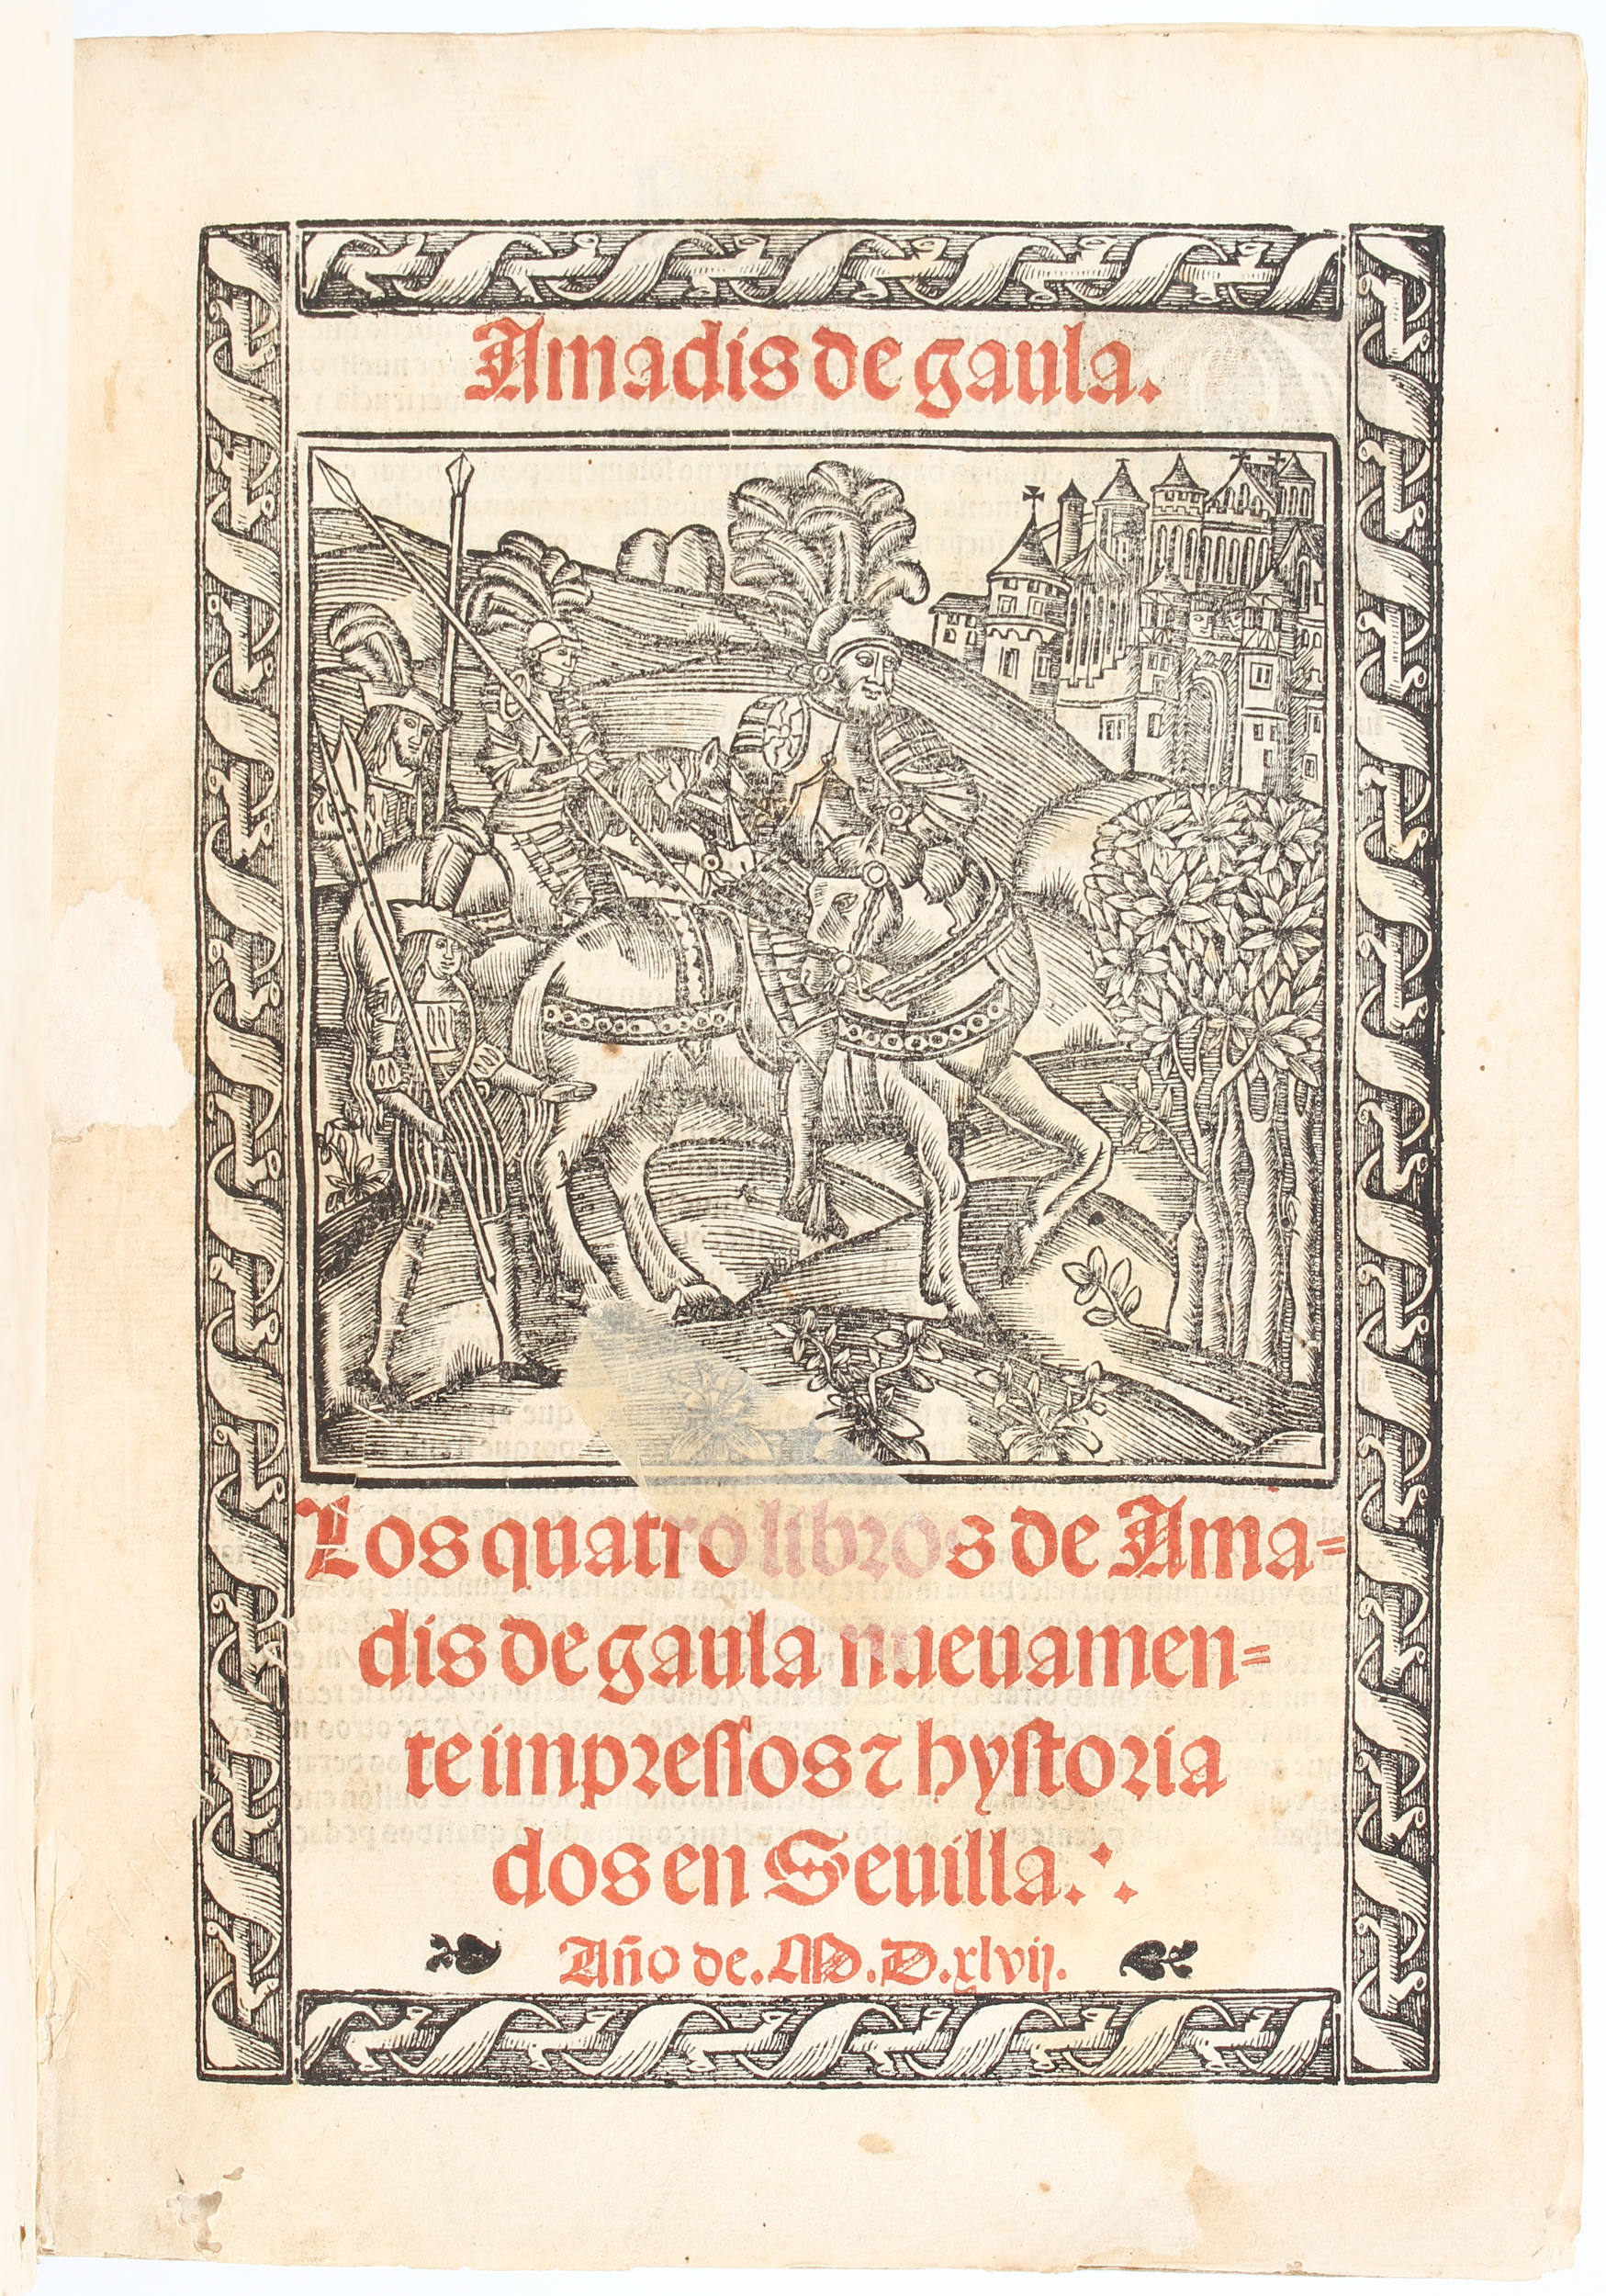 Amadis de gaula.
Los quatro libros de Ama=
dis de gaula nueuamen=
te impressos ⁊ hystoria
dos en Seuilla.
Año de. M. D. xlvij.